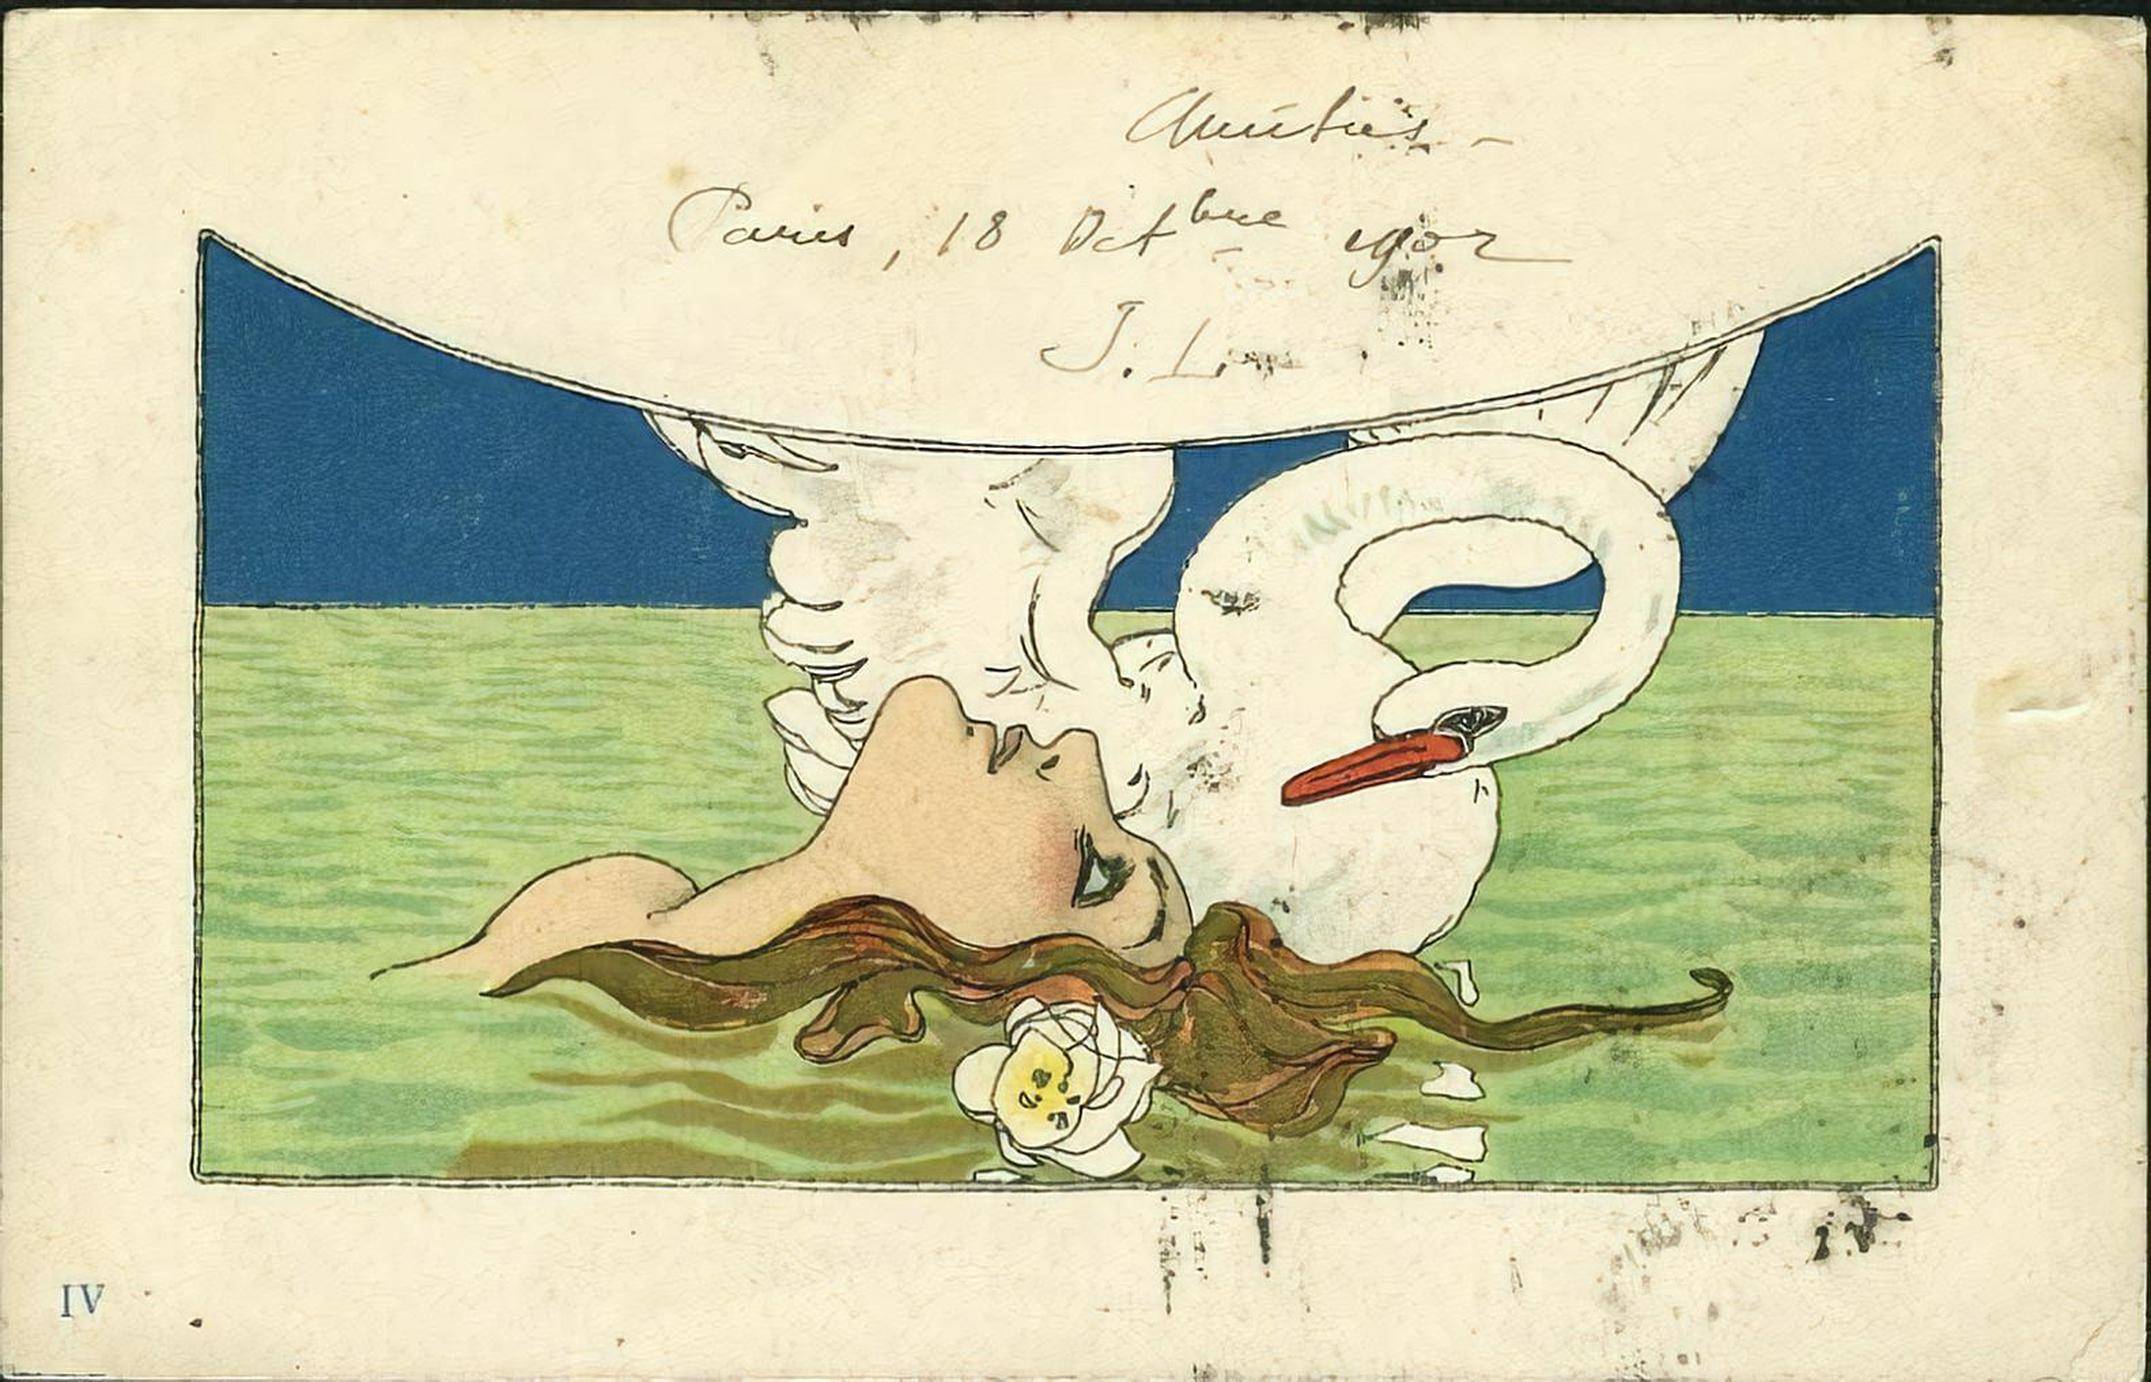 Amitiés -
Paris, 18 Octbre 1902
J. L.
IV